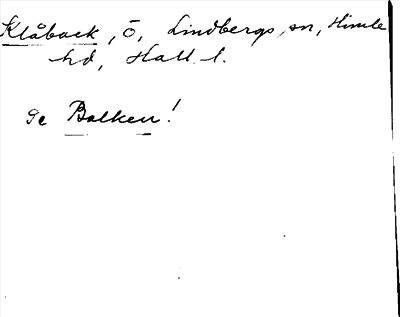 Klåback, Ö, Lindbergs sn, Himle
hd, Hall. l.
Se Balken!